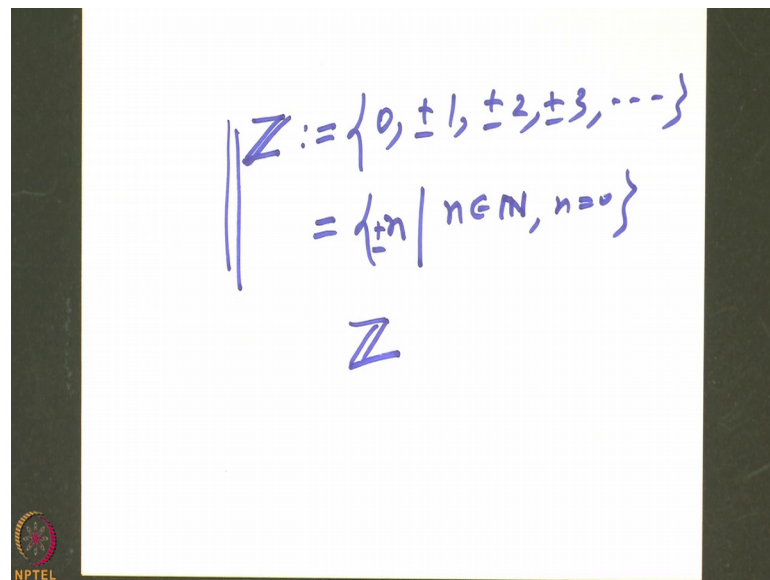 ℤ := {0, ±1, ±2, ±3, ---}
= {±n | n∈ℕ, n=0}
ℤ
NPTEL